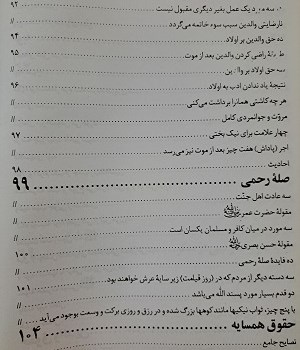 یک عمل بغیر دیگری مقبول نیست ۹۲
نارضایتی والدین سبب سوء خاتمه می‌گردد //
ده حق والدین بر اولاد ۹۴
راضی کردن والدین بعد از موت ۹۵
سه حق اولاد بر والدین //
نتیجهٔ یاد ندادن ادب به اولاد //
هر چه کاشتی همانرا برداشت می‌کنی //
مروّت و جوانمردی کامل //
چهار علامت برای نیک بختی ۹۷
اجر (پاداش) هفت چیز بعد از موت نیز می‌رسد //
احادیث ۹۸
صلهٔ رحمی ۹۹
سه عادت اهل جنّت //
مقولهٔ حضرت عمر //
سه مورد در میان کافر و مسلمان یکسان است //
مقولهٔ حسن بصری ۱۰۰
ده فایدهٔ صلهٔ رحمی //
سه دسته دیگر از مردم که در (روز قیامت) زیر سایهٔ عرش خواهند بود ۱۰۱
دو قدم بسیار مورد پسند اللّه می‌باشد //
با پنج چیز، ثواب نیکیها مانند کوهها بزرگ شده و در رزق و روزی برکت و وسعت بوجود می‌آید //
حقوق همسایه ۱۰۴
نصایح جامع //